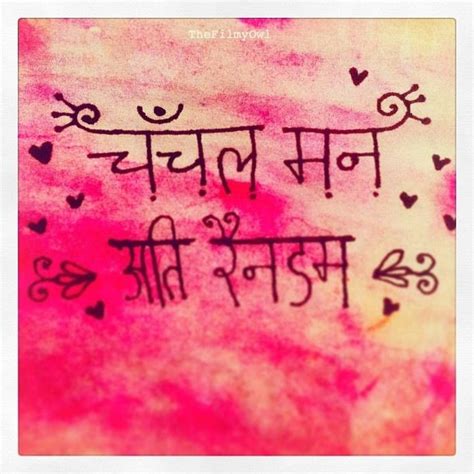 TheFilmyOwl
चँचल मन
अति रैनडम